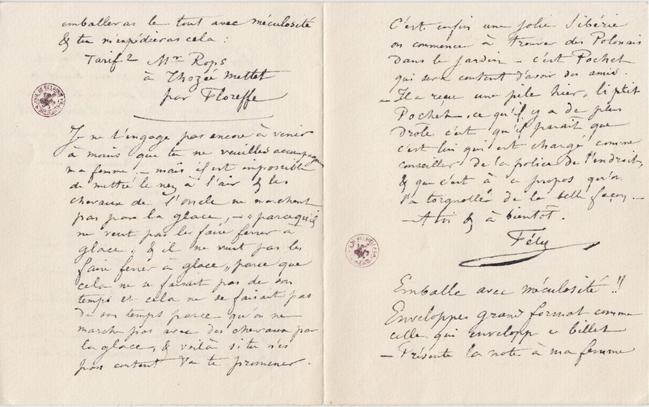 emballeras le tout avec méculosité
& tu m'expédieras cela :
Tarif 2 Mr Rops
à Thozée Mettet
par Floreffe
Je ne t'engage pas encore à venir
à moins que tu ne veuilles accompagner
ma femme ! – mais il est impossible
de mettre le nez à l'air & les
chevaux de l'oncle ne marchent
pas par la glace, – « parcequ'il
ne veut pas les faire ferrer à
glace, & il ne veut pas les
faire ferrer à glace, parce que
cela ne se faisait pas de son
temps et cela ne se faisait pas
de son temps parce qu'on ne
marche pas avec des chevaux par
la glace, & voilà si tu n'es
pas content va te promener.
C'est enfin une jolie Sibérie
on commence à trouver des Polonais
dans le jardin – c'est Pochet
qui sera content d'avoir des amis.
– Il a reçu une pile hier, li ptit
Pochet – ce qu'il y a de plus
drôle c'est qu'il paraît que
c'est lui qui est chargé comme
conseiller de la police de l'endroit,
& que c'est à ce propos qu'on
l'a torgnollé de la belle façon –
– A toi & à bientôt.
Fély
Emballe avec méculosité !!
Enveloppes grand format comme
celle qui enveloppe ce billet
– Présente la note à ma femme